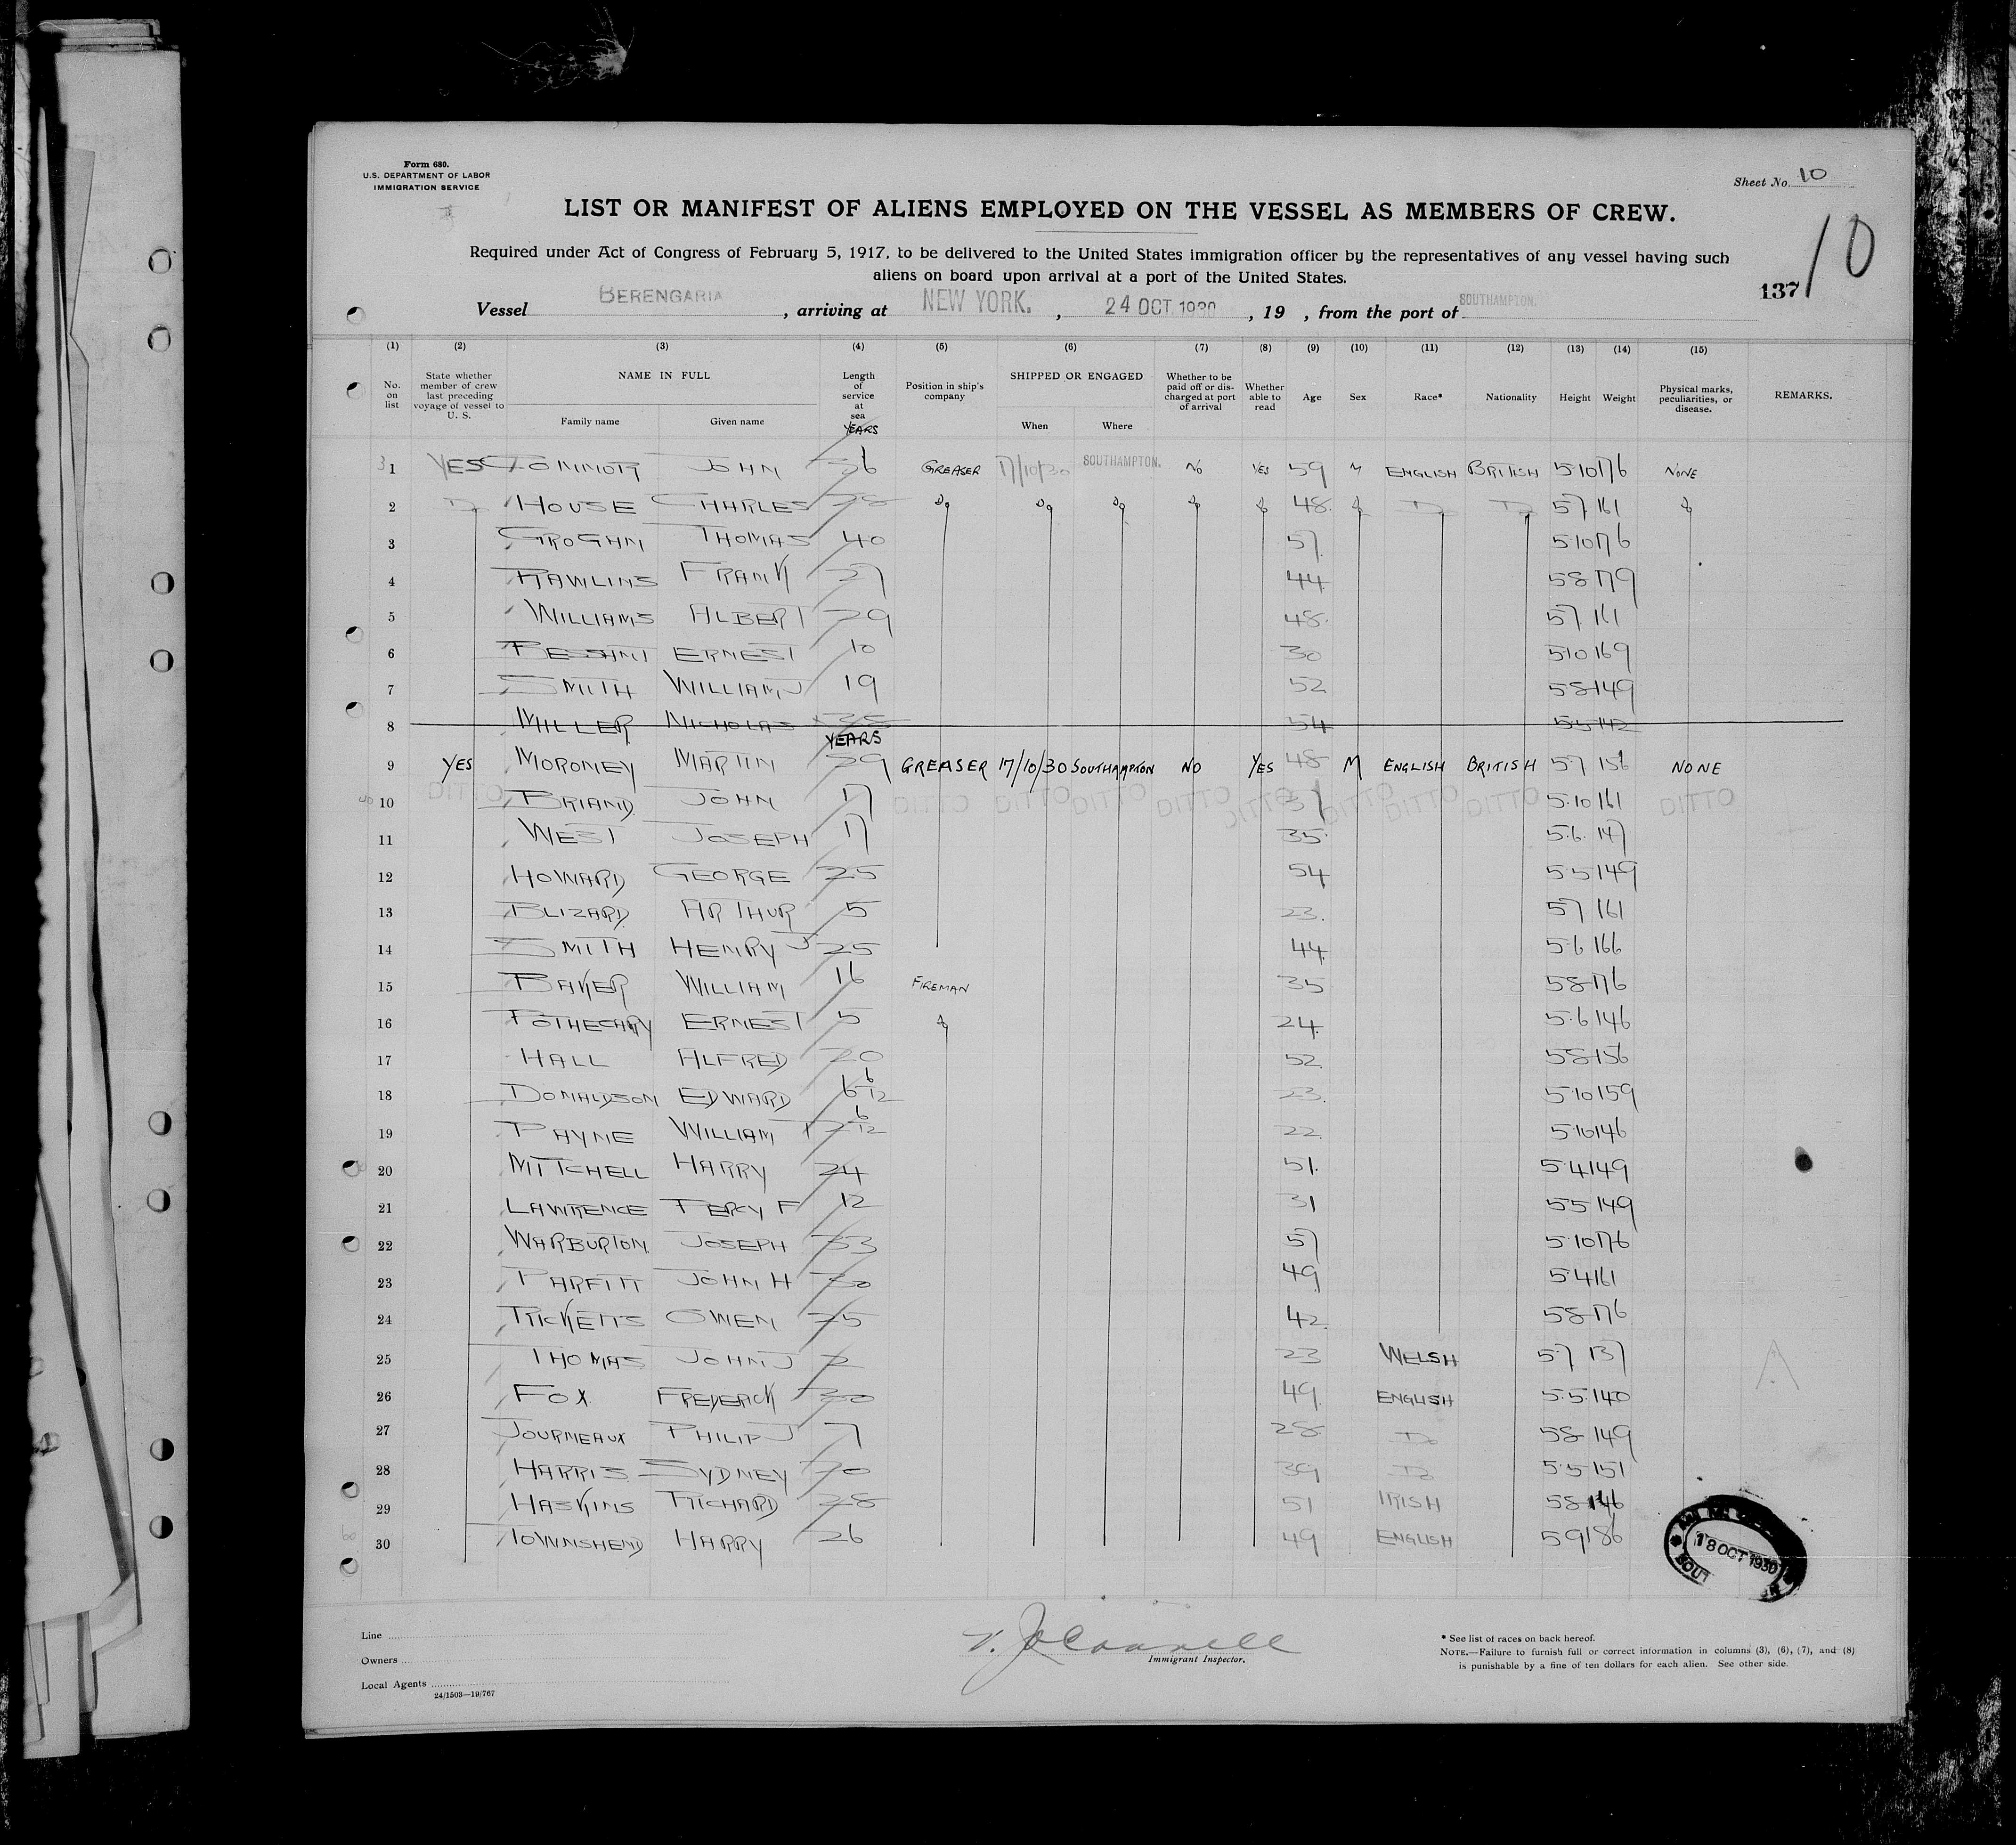 Form 680.
U.S. DEPARTMENT OF LABOR
IMMIGRATION SERVICE
Sheet No. 10
LIST OR MANIFEST OF ALIENS EMPLOYED ON THE VESSEL AS MEMBERS OF CREW.
Required under Act of Congress of February 5, 1917, to be delivered to the United States immigration officer by the representatives of any vessel having such
aliens on board upon arrival at a port of the United States.
137 10
Vessel BERENGARIA, arriving at NEW YORK., 24 OCT 1930, 19 , from the port of SOUTHAMPTON.
(1) (2) (3) (4) (5) (6) (7) (8) (9) (10) (11) (12) (13) (14) (15)
No. on list State whether member of crew last preceding voyage of vessel to U. S. NAME IN FULL Family name Given name Length of service at sea YEARS Position in ship's company SHIPPED OR ENGAGED When Where Whether to be paid off or discharged at port of arrival Whether able to read Age Sex Race* Nationality Height Weight Physical marks, peculiarities, or disease. REMARKS.
1 YES JOHN GREASER 17/10/30 SOUTHAMPTON. NO YES 59 M ENGLISH BRITISH 5·10 176 NONE
2 Do HOUSE CHARLES 28 Do Do Do Do Do 48 Do Do Do 5 7 161 Do
3 GROGAN THOMAS 40 57 5·10 176
4 RAWLINS FRANK 27 44 5 8 179
5 WILLIAMS ALBERT 29 48 5 7 161
6 BESSANT ERNEST 10 30 5 10 169
7 SMITH WILLIAM J 19 52 5 8 149
8 MILLER NICHOLAS 54 5 5 142
YEARS
9 YES MORONEY MARTIN 29 GREASER 17/10/30 SOUTHAMPTON NO YES 48 M ENGLISH BRITISH 5 7 156 NONE
10 DITTO BRIAND JOHN 17 DITTO DITTO DITTO DITTO DITTO 37 DITTO DITTO DITTO 5·10 161 DITTO
11 WEST JOSEPH 17 35 5·6 147
12 HOWARD GEORGE 25 54 5 5 149
13 BLIZARD ARTHUR 5 23 5 7 161
14 SMITH HENRY J 25 44 5·6 166
15 BAKER WILLIAM 16 FIREMAN 35 5 8 176
16 POTHECARY ERNEST 5 Do 24 5·6 146
17 HALL ALFRED 20 52 5 8 156
18 DONALDSON EDWARD 6 6/12 23 5·10 159
19 PAYNE WILLIAM T 2 6/12 22 5·10 146
20 MITCHELL HARRY 24 51 5·4 149
21 LAWRENCE PERCY F 12 31 5 5 149
22 WARBURTON JOSEPH 33 57 5·10 176
23 PARFITT JOHN H 30 49 5·4 161
24 RICKETTS OWEN 25 42 5 8 176
25 THOMAS JOHN J 2 23 WELSH 5·7 137
26 FOX FREDERICK 30 49 ENGLISH 5·5 140
27 JOURNEAUX PHILIP J 7 28 Do 5 8 149
28 HARRIS SYDNEY 20 39 Do 5·5 151
29 HASKINS RICHARD 28 51 IRISH 5 8 146
30 TOWNSHEND HARRY 26 49 ENGLISH 5 9 186
18 OCT 1930
Line
Owners
Local Agents
24/1503—19/767
Immigrant Inspector.
* See list of races on back hereof.
NOTE.—Failure to furnish full or correct information in columns (3), (6), (7), and (8)
is punishable by a fine of ten dollars for each alien. See other side.